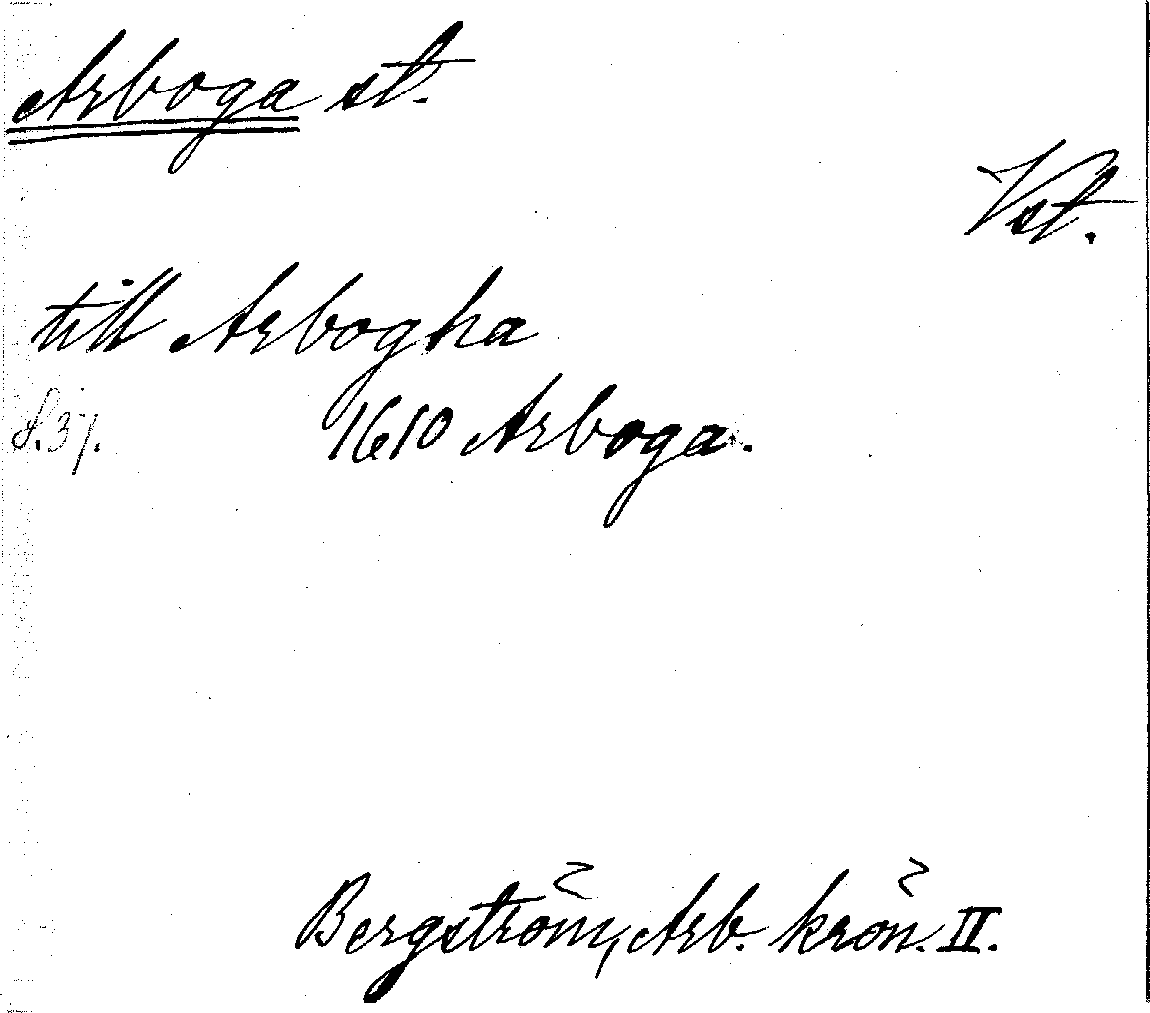 Arboga st.
Vst.
till Arbogha
s. 37. 1610 Arboga.
Bergström, Arb. krön. II.